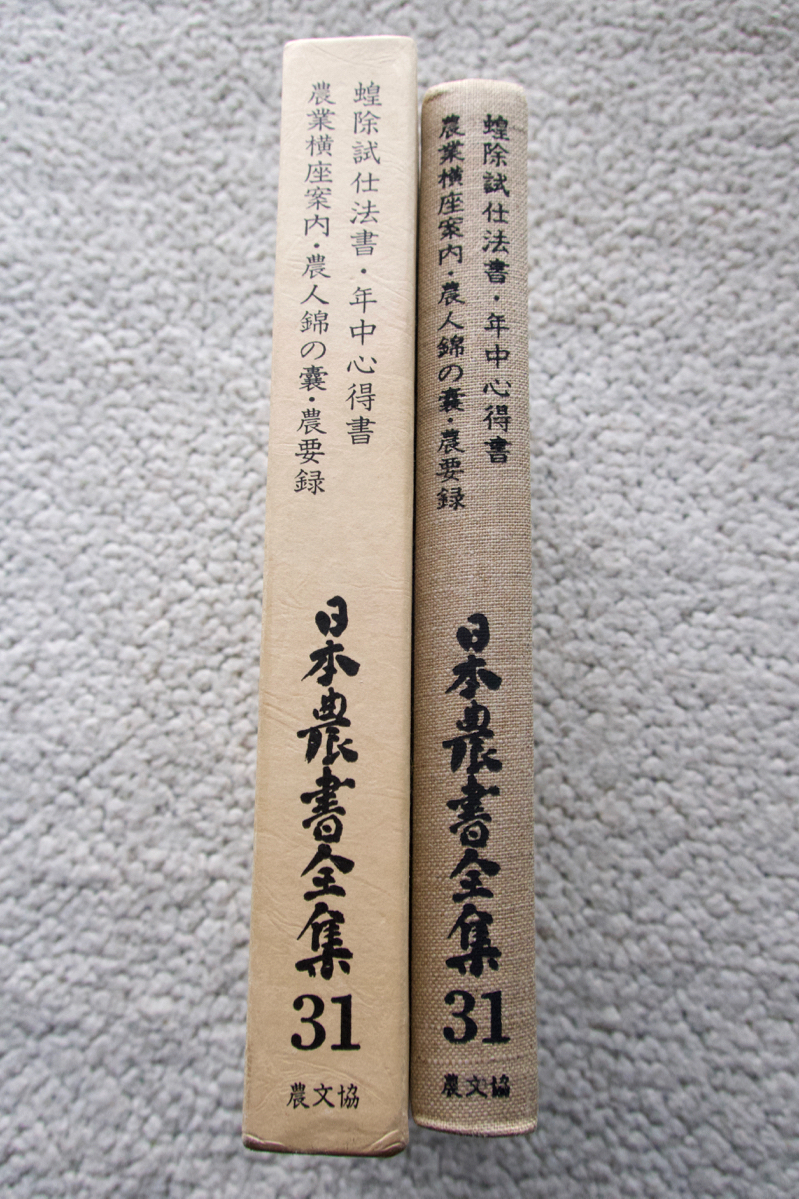 蝗除試仕法書・年中心得書
農業横座案内・農人錦の嚢・農要録
日本農書全集
31
農文協
蝗除試仕法書・年中心得書
農業横座案内・農人錦の嚢・農要録
日本農書全集
31
農文協